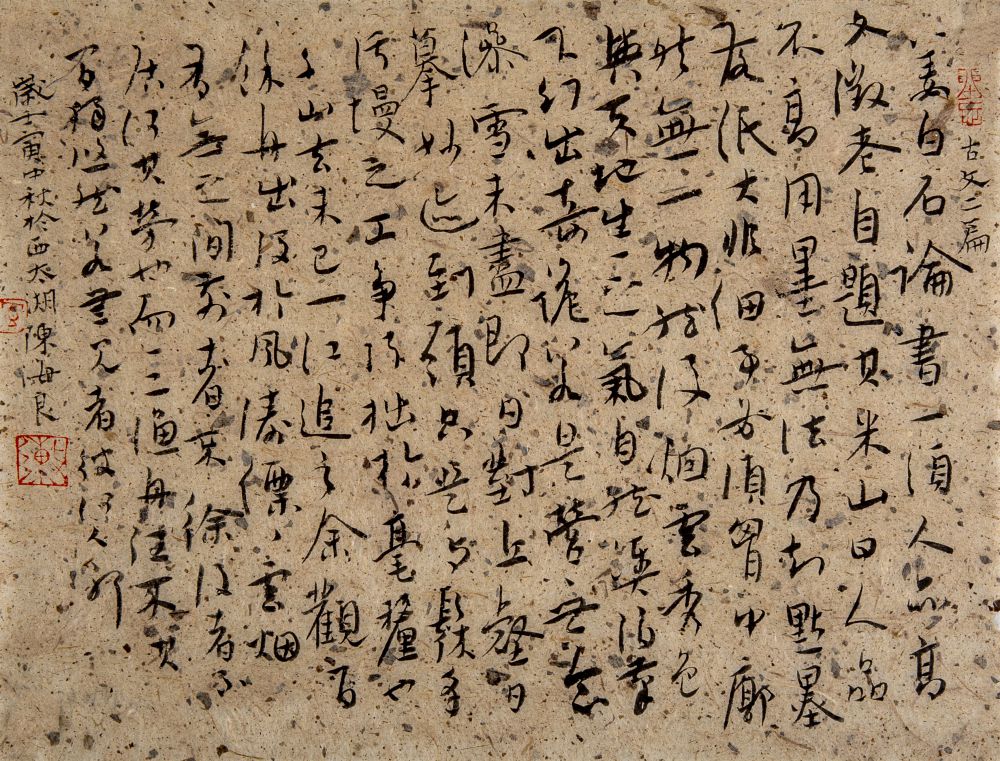 古文二篇
姜白石論書一須人品高
文徵老自題其米山曰人品
不高用墨無法乃知點墨
落紙大非細事必須胸中廓
然無一物然後烟雲秀色
與天地生生之氣自然湊泊筆
下幻出奇詭若是營營世念
澡雪未盡即日對丘壑日
摹妙迹到頭只是與髹采
圬墁之工爭巧拙於毫釐也
千山去未已一江追之余觀
舟出沒於風濤縹緲雲烟
有無之間前者 徐後者不
居何其勞也而三漁舟 其
間 悠然若無見者彼何人耶
歲壬寅中秋於西太湖陳海良